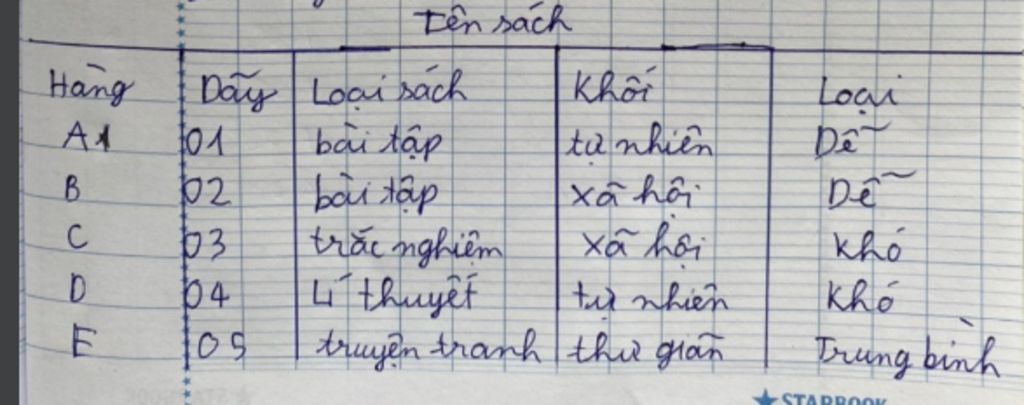 Tên sách
Hàng Dãy Loại sách Khối Loại
A1 01 bài tập tự nhiên Dễ
B 02 bài tập xã hội Dễ
C 03 trắc nghiệm xã hội khó
D 04 Lí thuyết tự nhiên khó
E 05 truyện tranh thư giãn Trung bình
STARBOOK